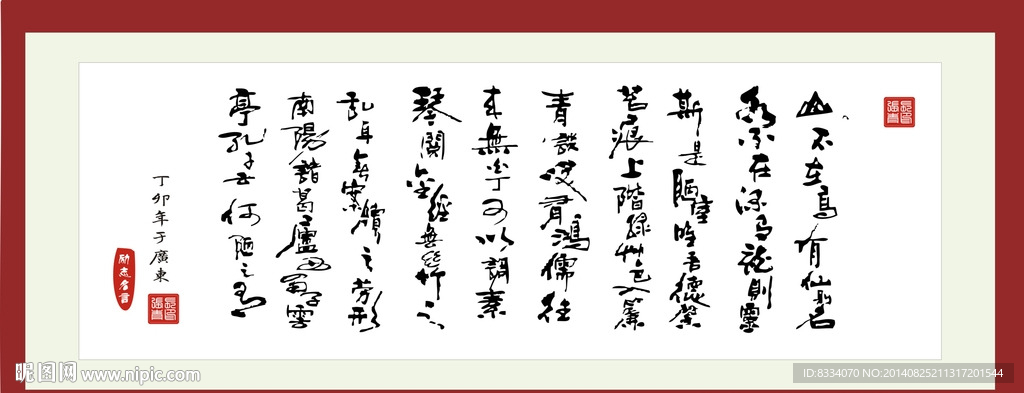 山不在高有仙則名
水不在深有龍則靈
斯是陋室唯吾德馨
苔痕上階綠艸色入簾
青談笑有鴻儒往
來無白丁可以調素
琴閱金經無絲竹之
乱耳無案牘之劳形
南陽諸葛廬西蜀子雲
亭孔子云何陋之有
丁卯年于廣東
励志名言
昵图网 www.nipic.com
ID:8334070 NO:20140825211317201544